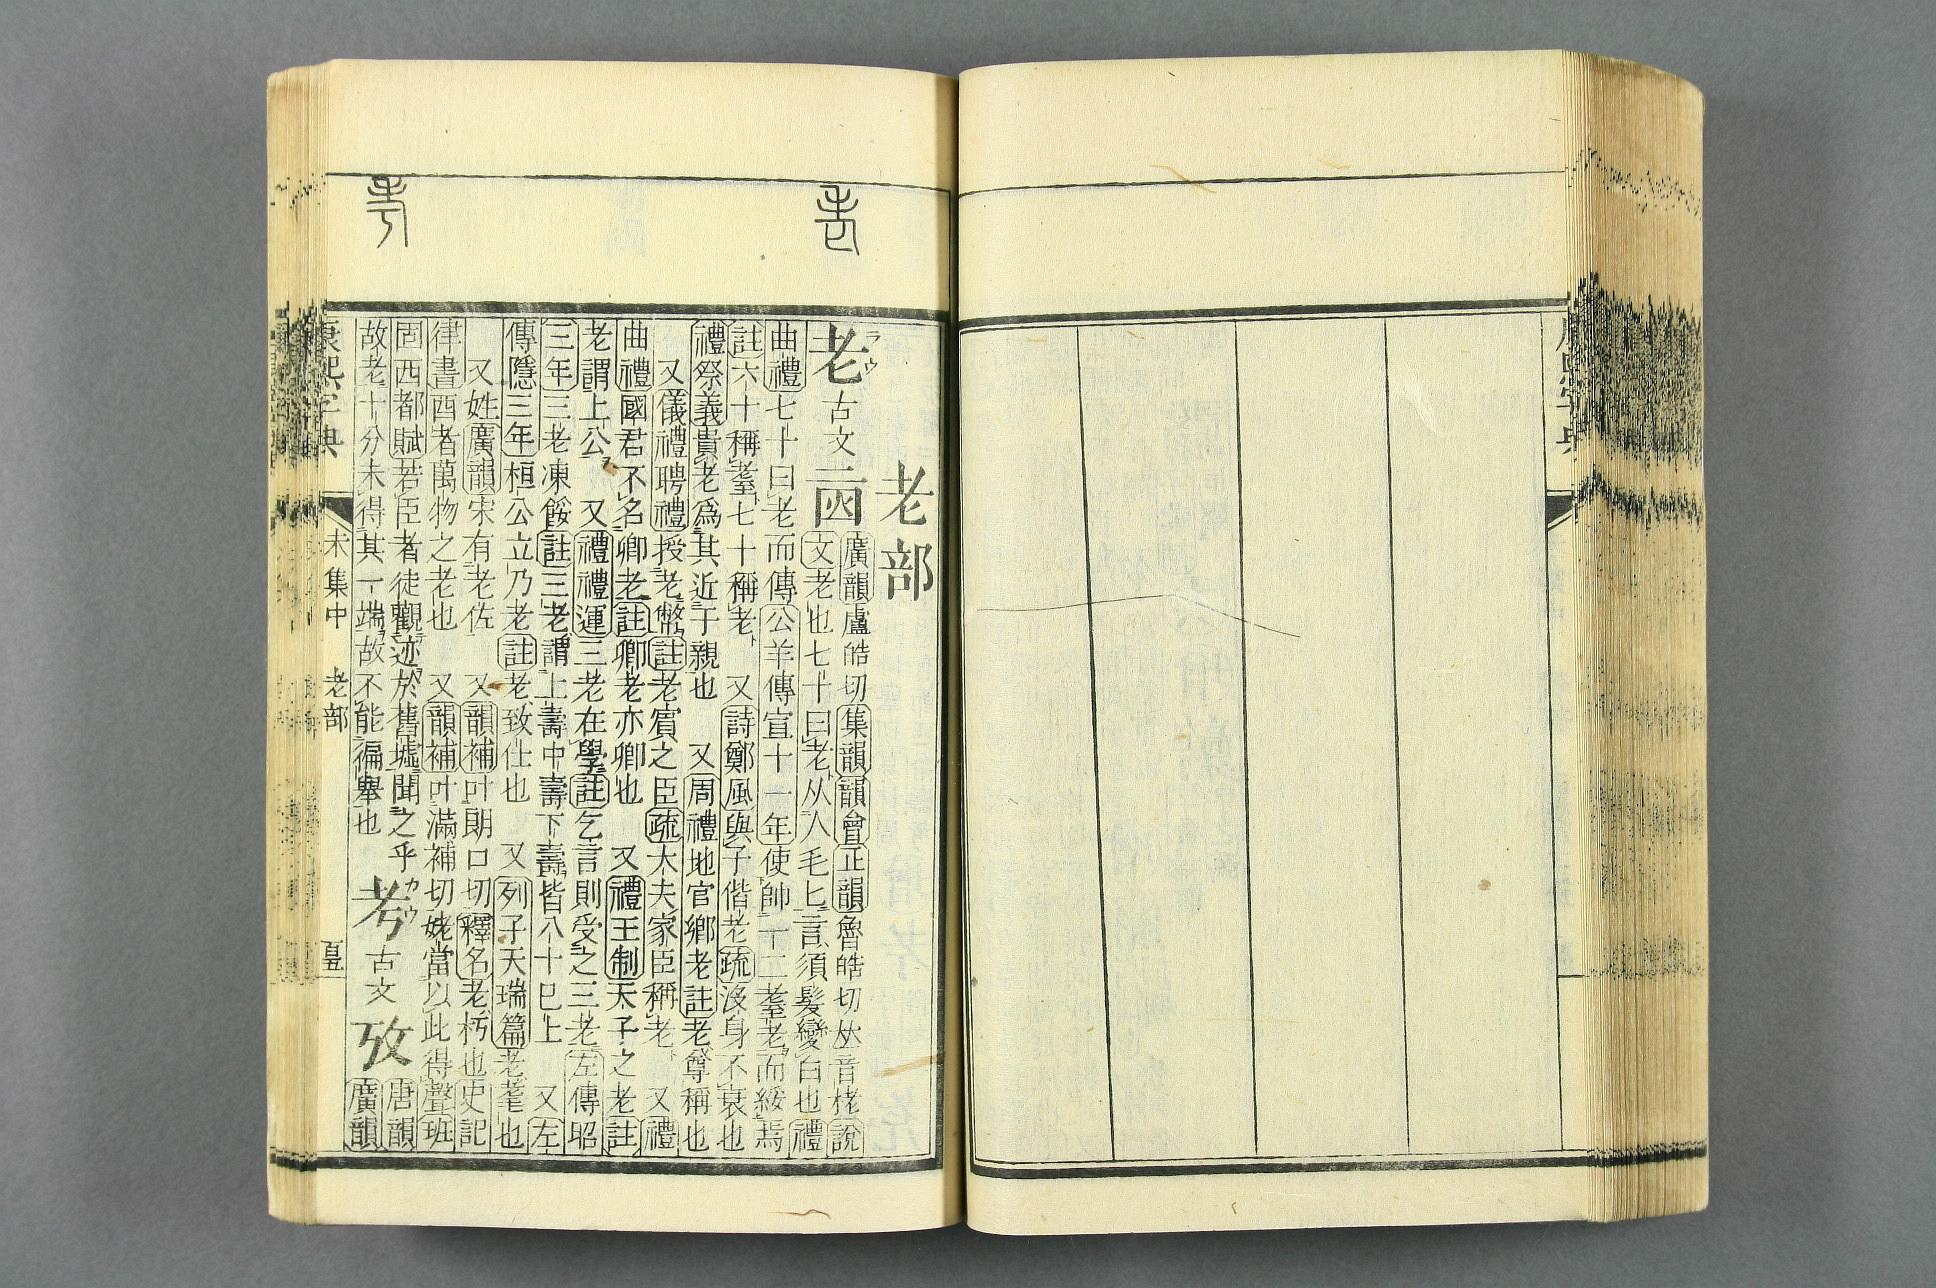 老
考
老部
老 ラウ 古文
廣韻盧皓切集韻韻會正韻魯皓切𠀤音栳說
文老也七十曰老从人毛匕言須髮變白也禮
曲禮七十曰老而傳公羊傳宣十一年使帥一二耋老而綏焉
註六十稱耋七十稱老 又詩鄭風與子偕老疏沒身不衰也
禮祭義貴老爲其近于親也 又周禮地官鄉老註老尊稱也
又儀禮聘禮授老幣註老賓之臣疏大夫家臣稱老 又禮
曲禮國君不名卿老註卿老亦卿也 又禮王制天子之老註
老謂上公 又禮禮運三老在學註乞言則受之三老左傳昭
三年三老凍餒註三老謂上壽中壽下壽皆八十已上 又左
傳隱三年桓公立乃老註老致仕也 又列子天瑞篇老耄也
又姓廣韻宋有老佐 又韻補叶朗口切釋名老朽也史記
律書酉者萬物之老也 又韻補叶滿補切姥當以此得聲班
固西都賦若臣者徒觀迹於舊墟聞之乎
故老十分未得其一端故不能徧舉也
考 カウ 古文 攷
唐韻
廣韻
康熙字典 未集中 老部